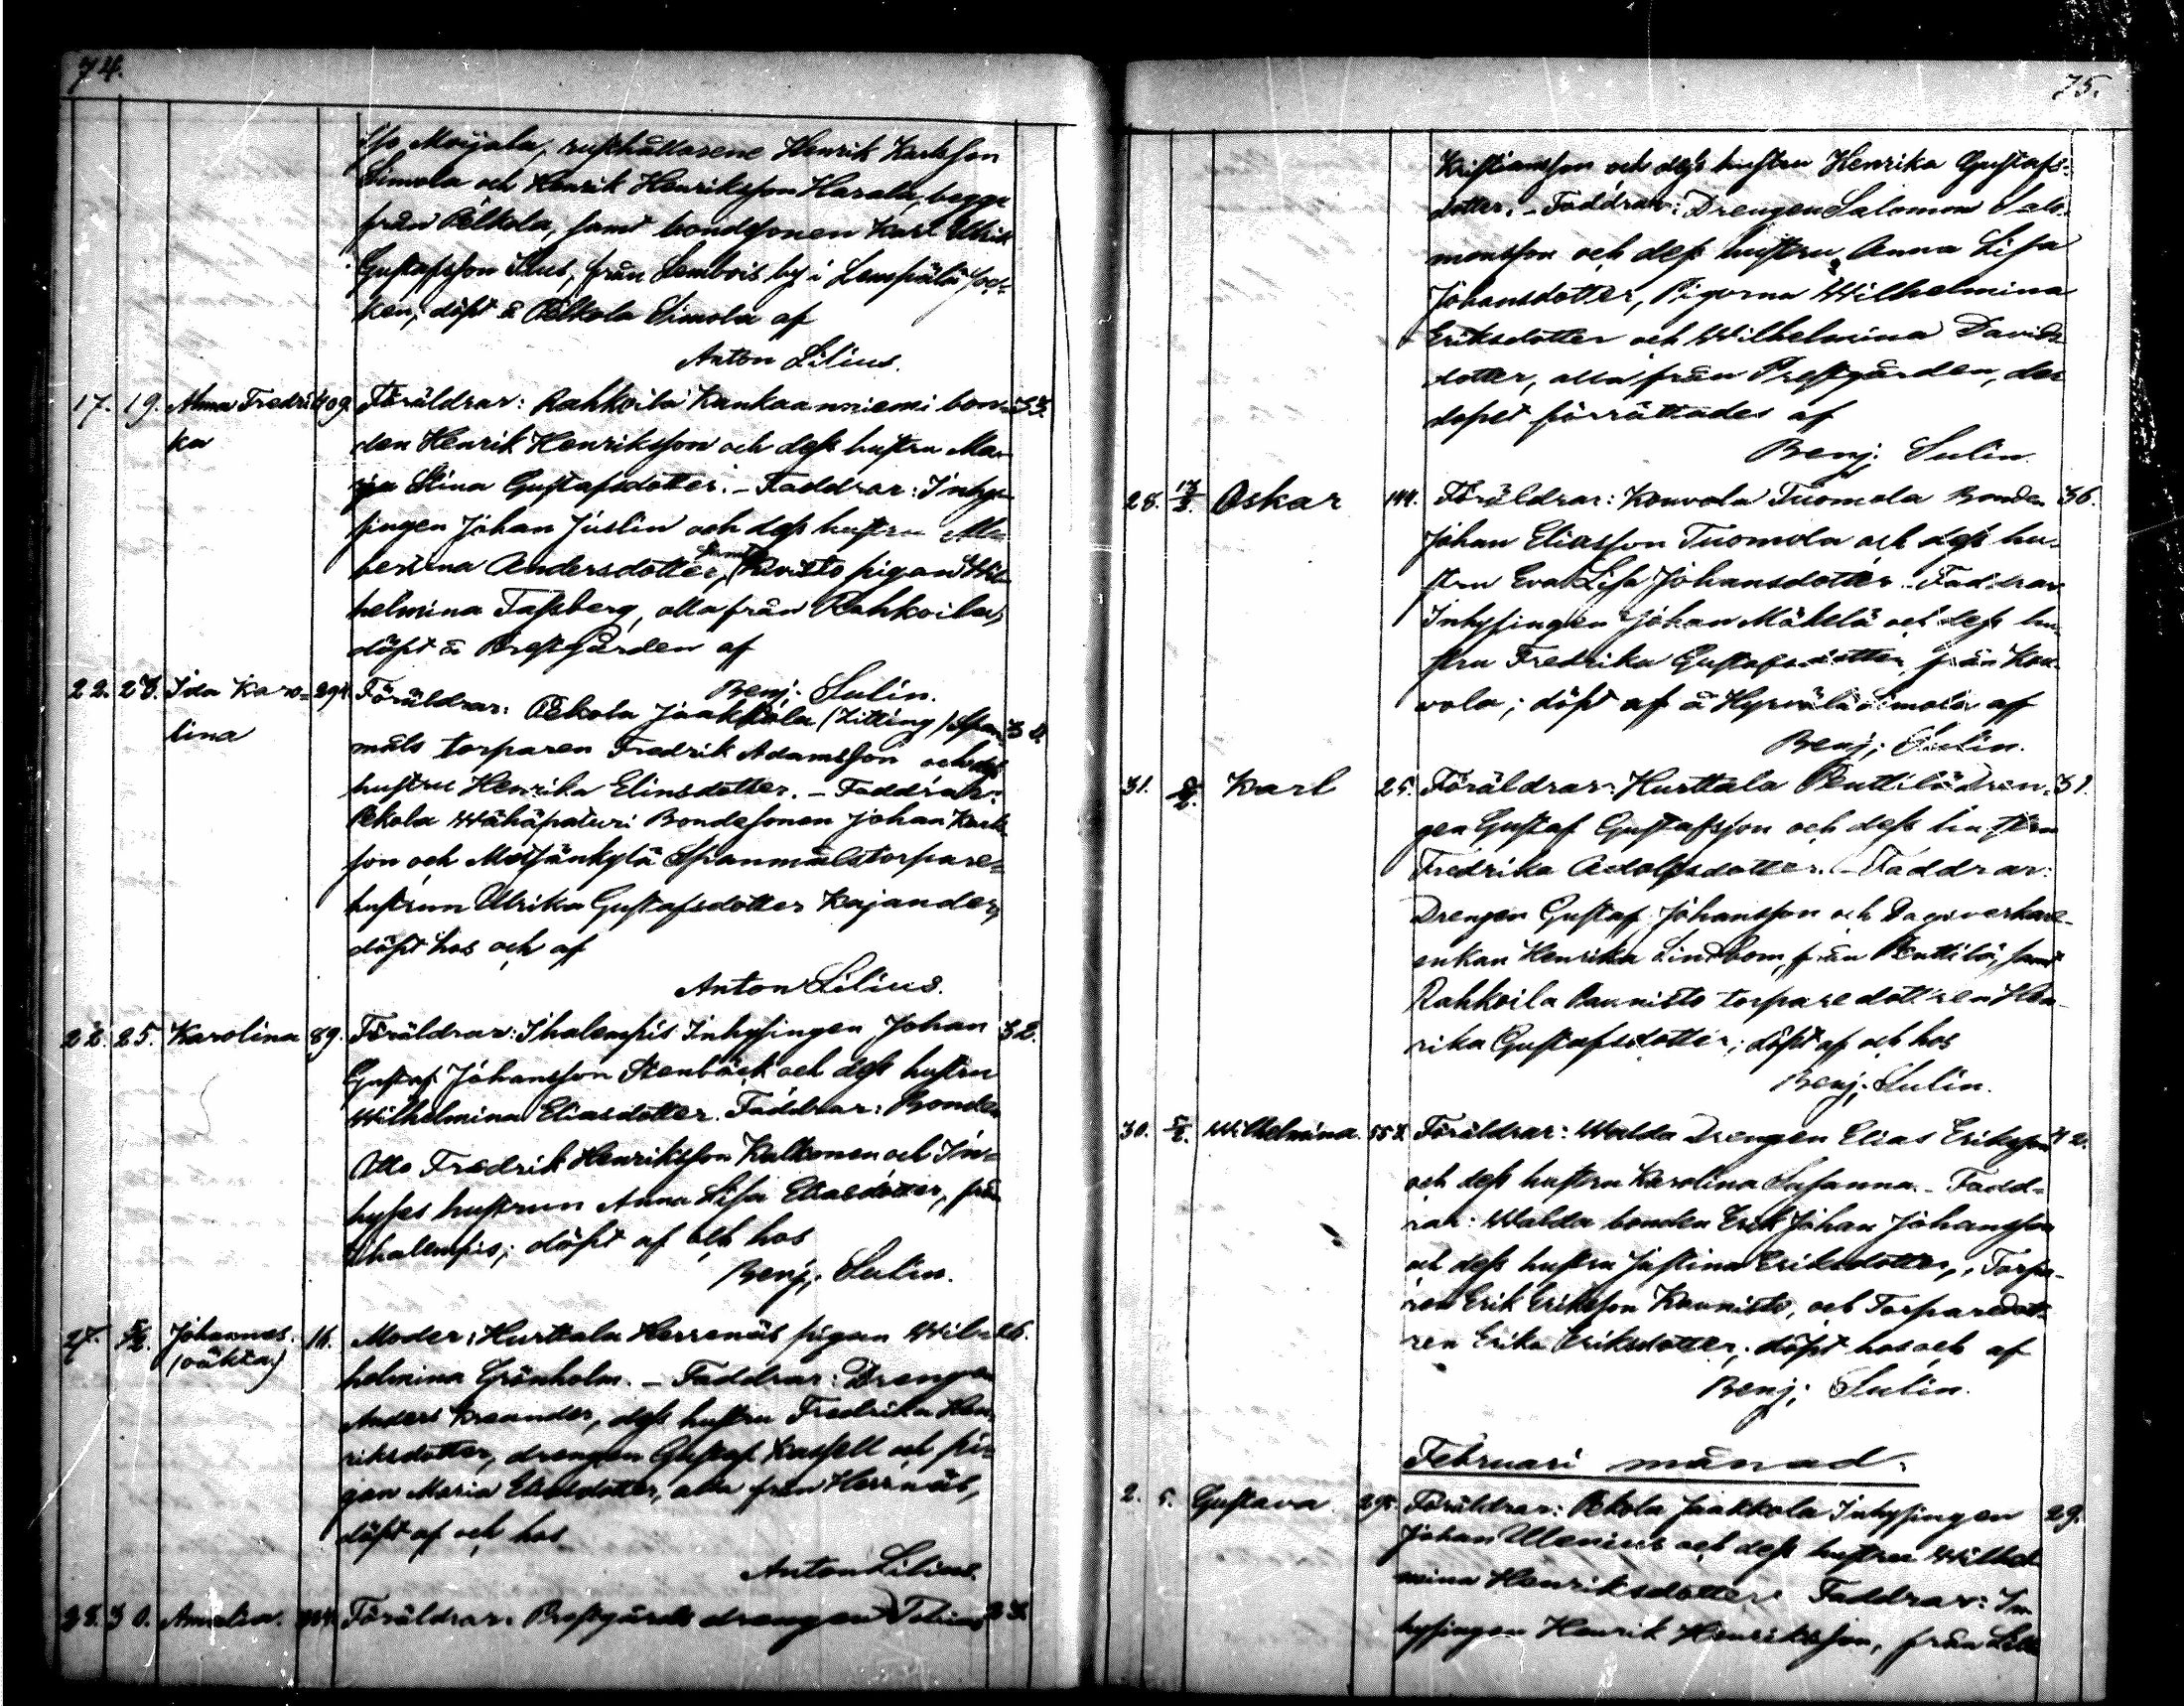 74.
Maijala, rusthållarene Henrik Karlsson
Simola och Henrik Henriksson Harala, begge
från Pelkola, samt bondesonen Karl Ulrik
Gustafsson från Lembois by i Lempälä soc-
ken; döpt å Pelkola Simola af
Anton Lilius.
17. 19. Alma Fredri- 409. Föräldrar: Rahkoila Kankaanniemi bon- 33.
ka den Henrik Henriksson och dess hustru Ma-
ria Stina Gustafsdotter. – Faddrar: Inhy-
singen Johan Juslin och dess hustru
Andersdotter, samt Kunisto pigan Wil-
helmina Tassberg, alla från Rahkoila,
döpt å Prestgården af
Benj. Sulin.
22. 23. Ida Karo- 294. Föräldrar: Pekola Jaakkola (Zitting) Span-
lina måls torparen Fredrik Adamsson och dess
hustru Henrika Elinsdotter. – Faddrar:
Pekola Wähäpaturi Bondesonen Johan Karls-
son och Metsänkylä Spanmålstorpare-
hustrun Ulrika Gustafsdotter Kajander,
döpt hos och af
Anton Lilius.
22. 25. Karolina 89. Föräldrar: Ihalempis Inhysingen Johan 32.
Gustaf Johansson Stenbäck och dess hustru
Wilhelmina Eliasdotter. Faddrar: Bonden
Otto Fredrik Henriksson Kulkonen och In-
hyses hustrun Anna Lisa Eliasdotter, från
Ihalempis; döpt af och hos
Benj. Sulin.
27. 5/2. Johannes 16. Moder: Hurttala Herrenäs pigan Wil- 26.
(oäkta) helmina Grönholm. – Faddrar: Drengen
Anders Kreander, dess hustru Fredrika Hen-
riksdotter, drengen Gustaf Kassell och pi-
gan Maria Eliasdotter, alla från Herrnäs,
döpt af och hos
Anton Lilius.
28. 30. Amalia. Föräldrar: Prestgårds drengen Tobias
75.
Kristiansson och dess hustru Henrika Gustafs-
dotter. – Faddrar: Drengen Salomon Salo-
monsson och dess hustru Anna Lisa
Johansdotter, Pigorna Wilhelmina
Eriksdotter och Wilhelmina Davids-
dotter, alla från Prestgården, der
dopet förrättades af
Benj. Sulin.
28. Oskar 144. Föräldrar: Konvola Tuomola Bonden 36.
Johan Eliasson Tuomola och dess hu-
stru Eva Lisa Johansdotter. – Faddrar
Inhysingen Johan Mäkelä och dess hu-
stru Fredrika Gustafsdotter, från Kon-
vola; döpt af å Hyrvälä Simola af
Benj. Sulin.
31. Karl 25. Föräldrar: Hurttala Penttilä Dren- 31.
gen Gustaf Gustafsson och dess hustru
Fredrika Adolfsdotter. – Faddrar:
Drengen Gustaf Johansson och Dagsverkare-
enkan Henrika Lindbom, från Penttilä, samt
Rahkoila Kaunisto torparedottren Hen-
rika Gustafsdotter; döpt af och hos
Benj. Sulin.
30. 5/2. Wilhelmina. Föräldrar: Walda Drengen Elias Eriksson 42.
och dess hustru Karolina Susanna. – Fadd-
rar: Walda bonden Erik Johan Johansson
och dess hustru Justina Eriksdotter, Torpa-
ren Erik Eriksson Kaunisto, och Torparedott-
ren Erika Eriksdotter; döpt hos och af
Benj. Sulin.
Februari månad.
2. 5. Gustava 295. Föräldrar: Pekola Jaakkola Inhysingen 29.
Johan Ulenius och dess hustru Wilhel-
mina Henriksdotter Faddrar: In-
hysingen Henrik Henriksson, från